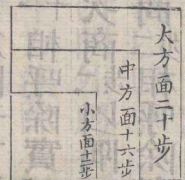 大方面二十步
中方面十六步
小方面十二步